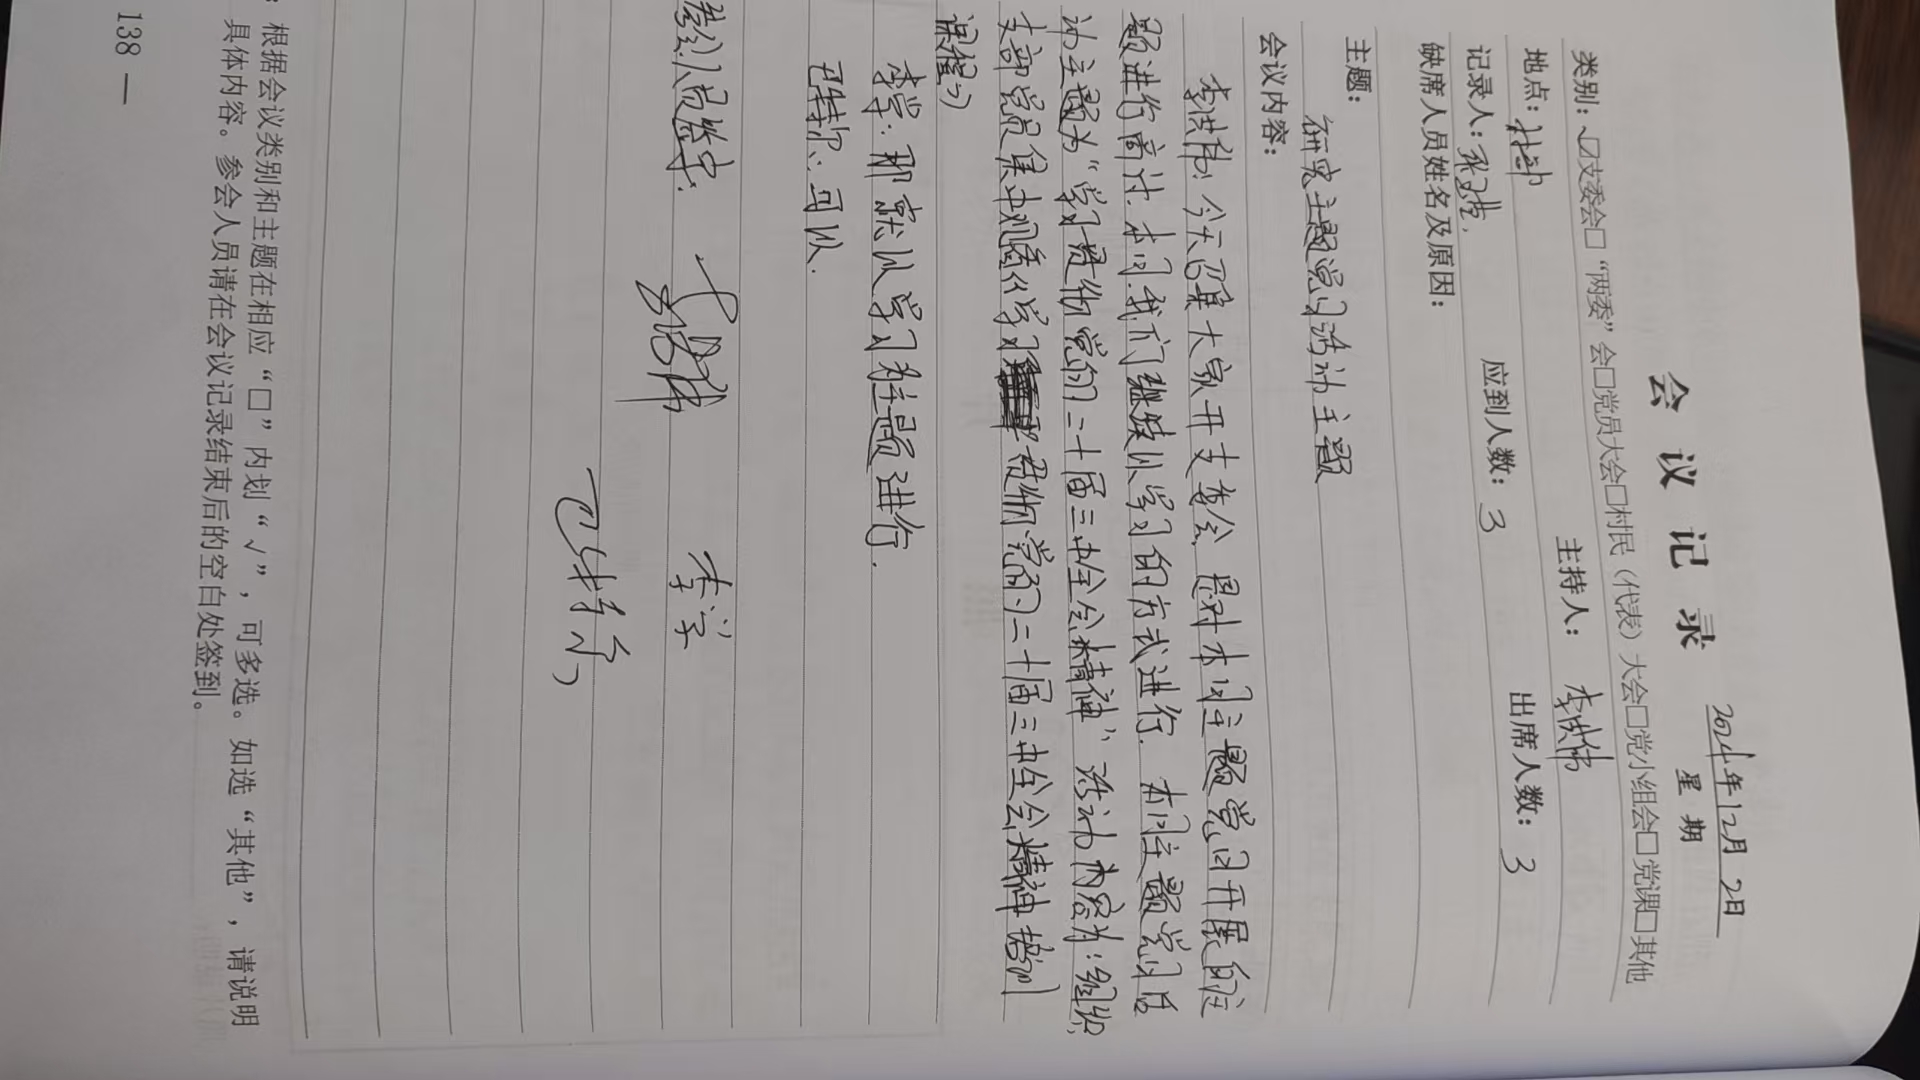 会议记录
2024年12月2日
星期
类别：☑支委会□“两委”会□党员大会□村民（代表）大会□党小组会□党课□其他
地点：村部 主持人：李洪伟
记录人： 应到人数：3 出席人数：3
缺席人员姓名及原因：
主题：
研究主题党日活动主题
会议内容：
李洪伟：今天召集大家开支委会，是对本月主题党日开展的主
题进行商讨.本月我们继续以学习的方式进行.本月主题党日活
动主题为“学习贯彻党的二十届三中全会精神”活动内容为：组织
支部党员集中观看学习贯彻党的二十届三中全会精神培训
课程》
李学：那就以学习为主题进行.
巴特尔：可以.
参会人员签字：
李洪伟 李学
巴特尔
：根据会议类别和主题在相应“□”内划“√”，可多选。如选“其他”，请说明
具体内容。参会人员请在会议记录结束后的空白处签到。
138 —